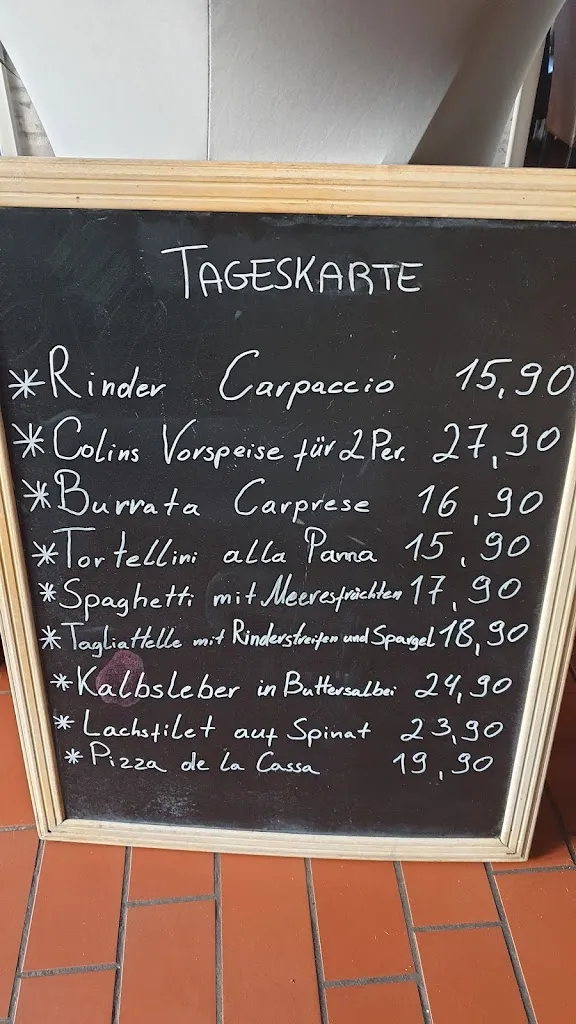 TAGESKARTE
*Rinder Carpaccio 15,90
*Colins Vorspeise für 2 Per. 27,90
*Burrata Carprese 16,90
*Tortellini alla Panna 15,90
*Spaghetti mit Meeresfrüchten 17,90
*Tagliattelle mit Rinderstreifen und Spargel 18,90
*Kalbsleber in Buttersalbei 24,90
*Lachsfilet auf Spinat 23,90
*Pizza de la Cassa 19,90